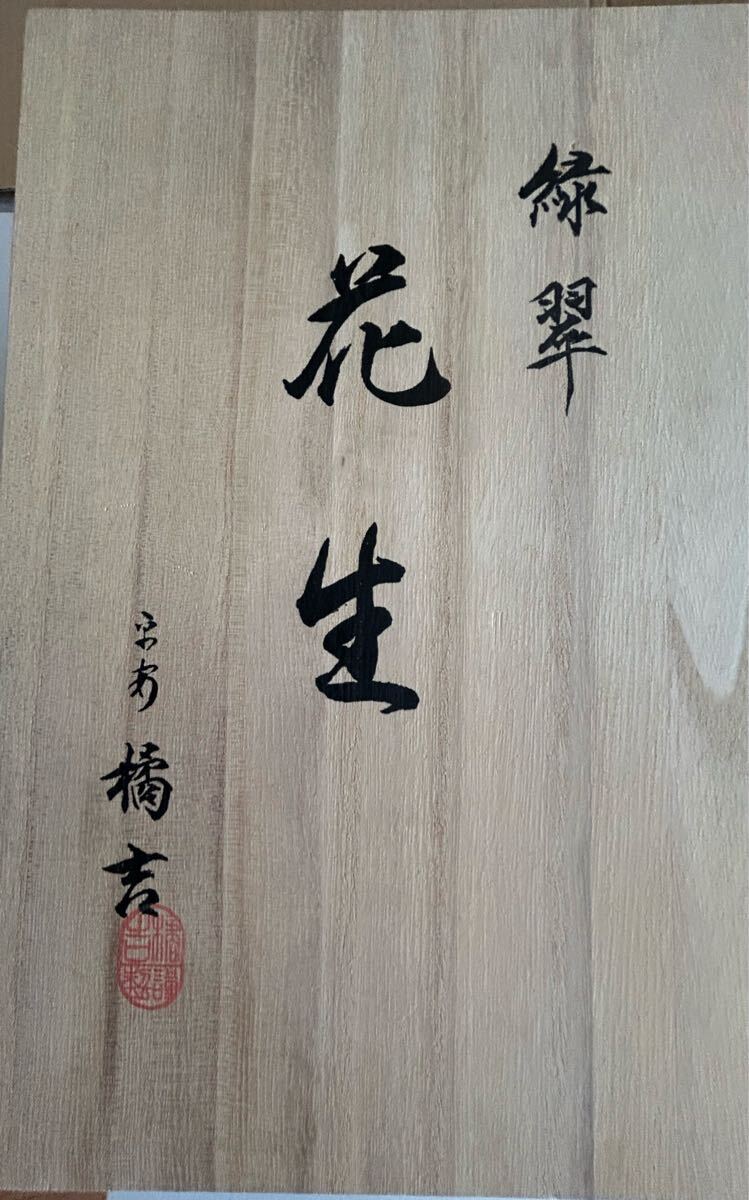 緑翠
花生
平安 橘吉